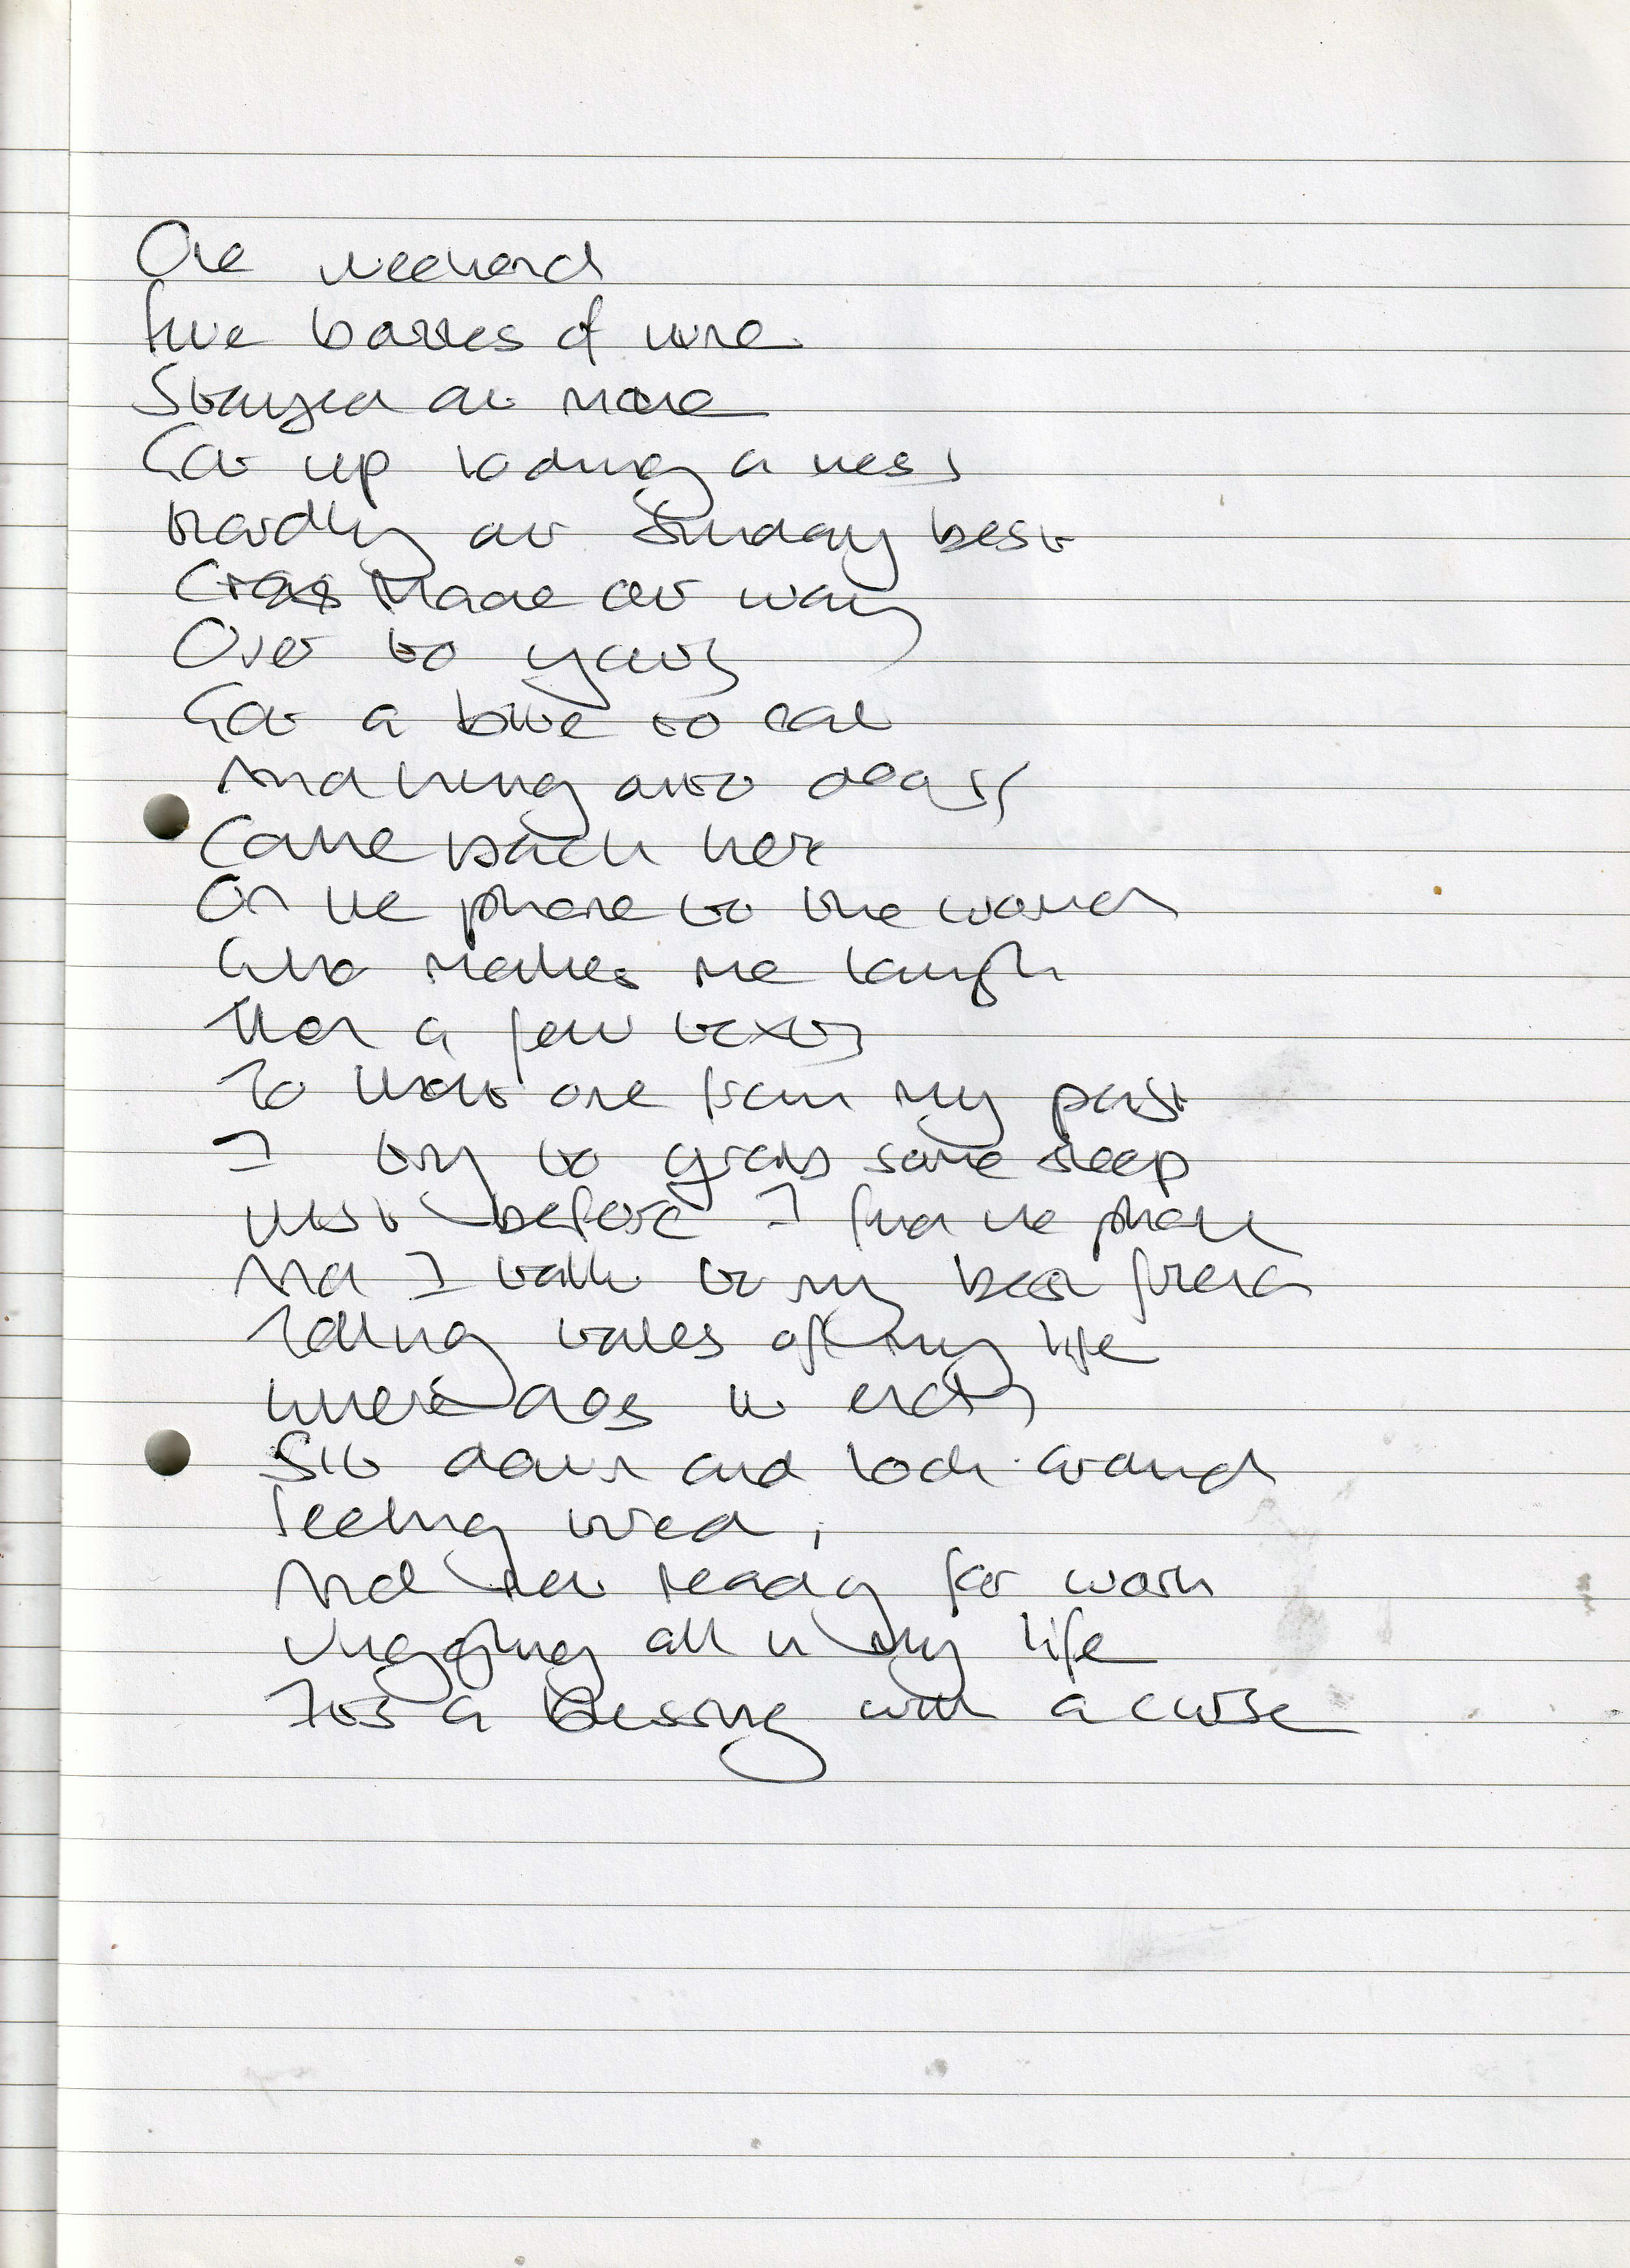 One weekend
Five bottles of wine
Stayed at mine
Got up looking a mess
Hardly our Sunday best
Made our way
Over to yours
Got a bite to eat
And hung out
Came back here
On the phone to the woman
Who makes me laugh
Then a few texts
To that one from my past
I try to grab some sleep
Just before I find the phone
And I talk to my best friend
Telling tales of my life
Where does it end
Sit down and look around
Feeling tired,
And not ready for work
Juggling all in my life
It's a blessing with a curse